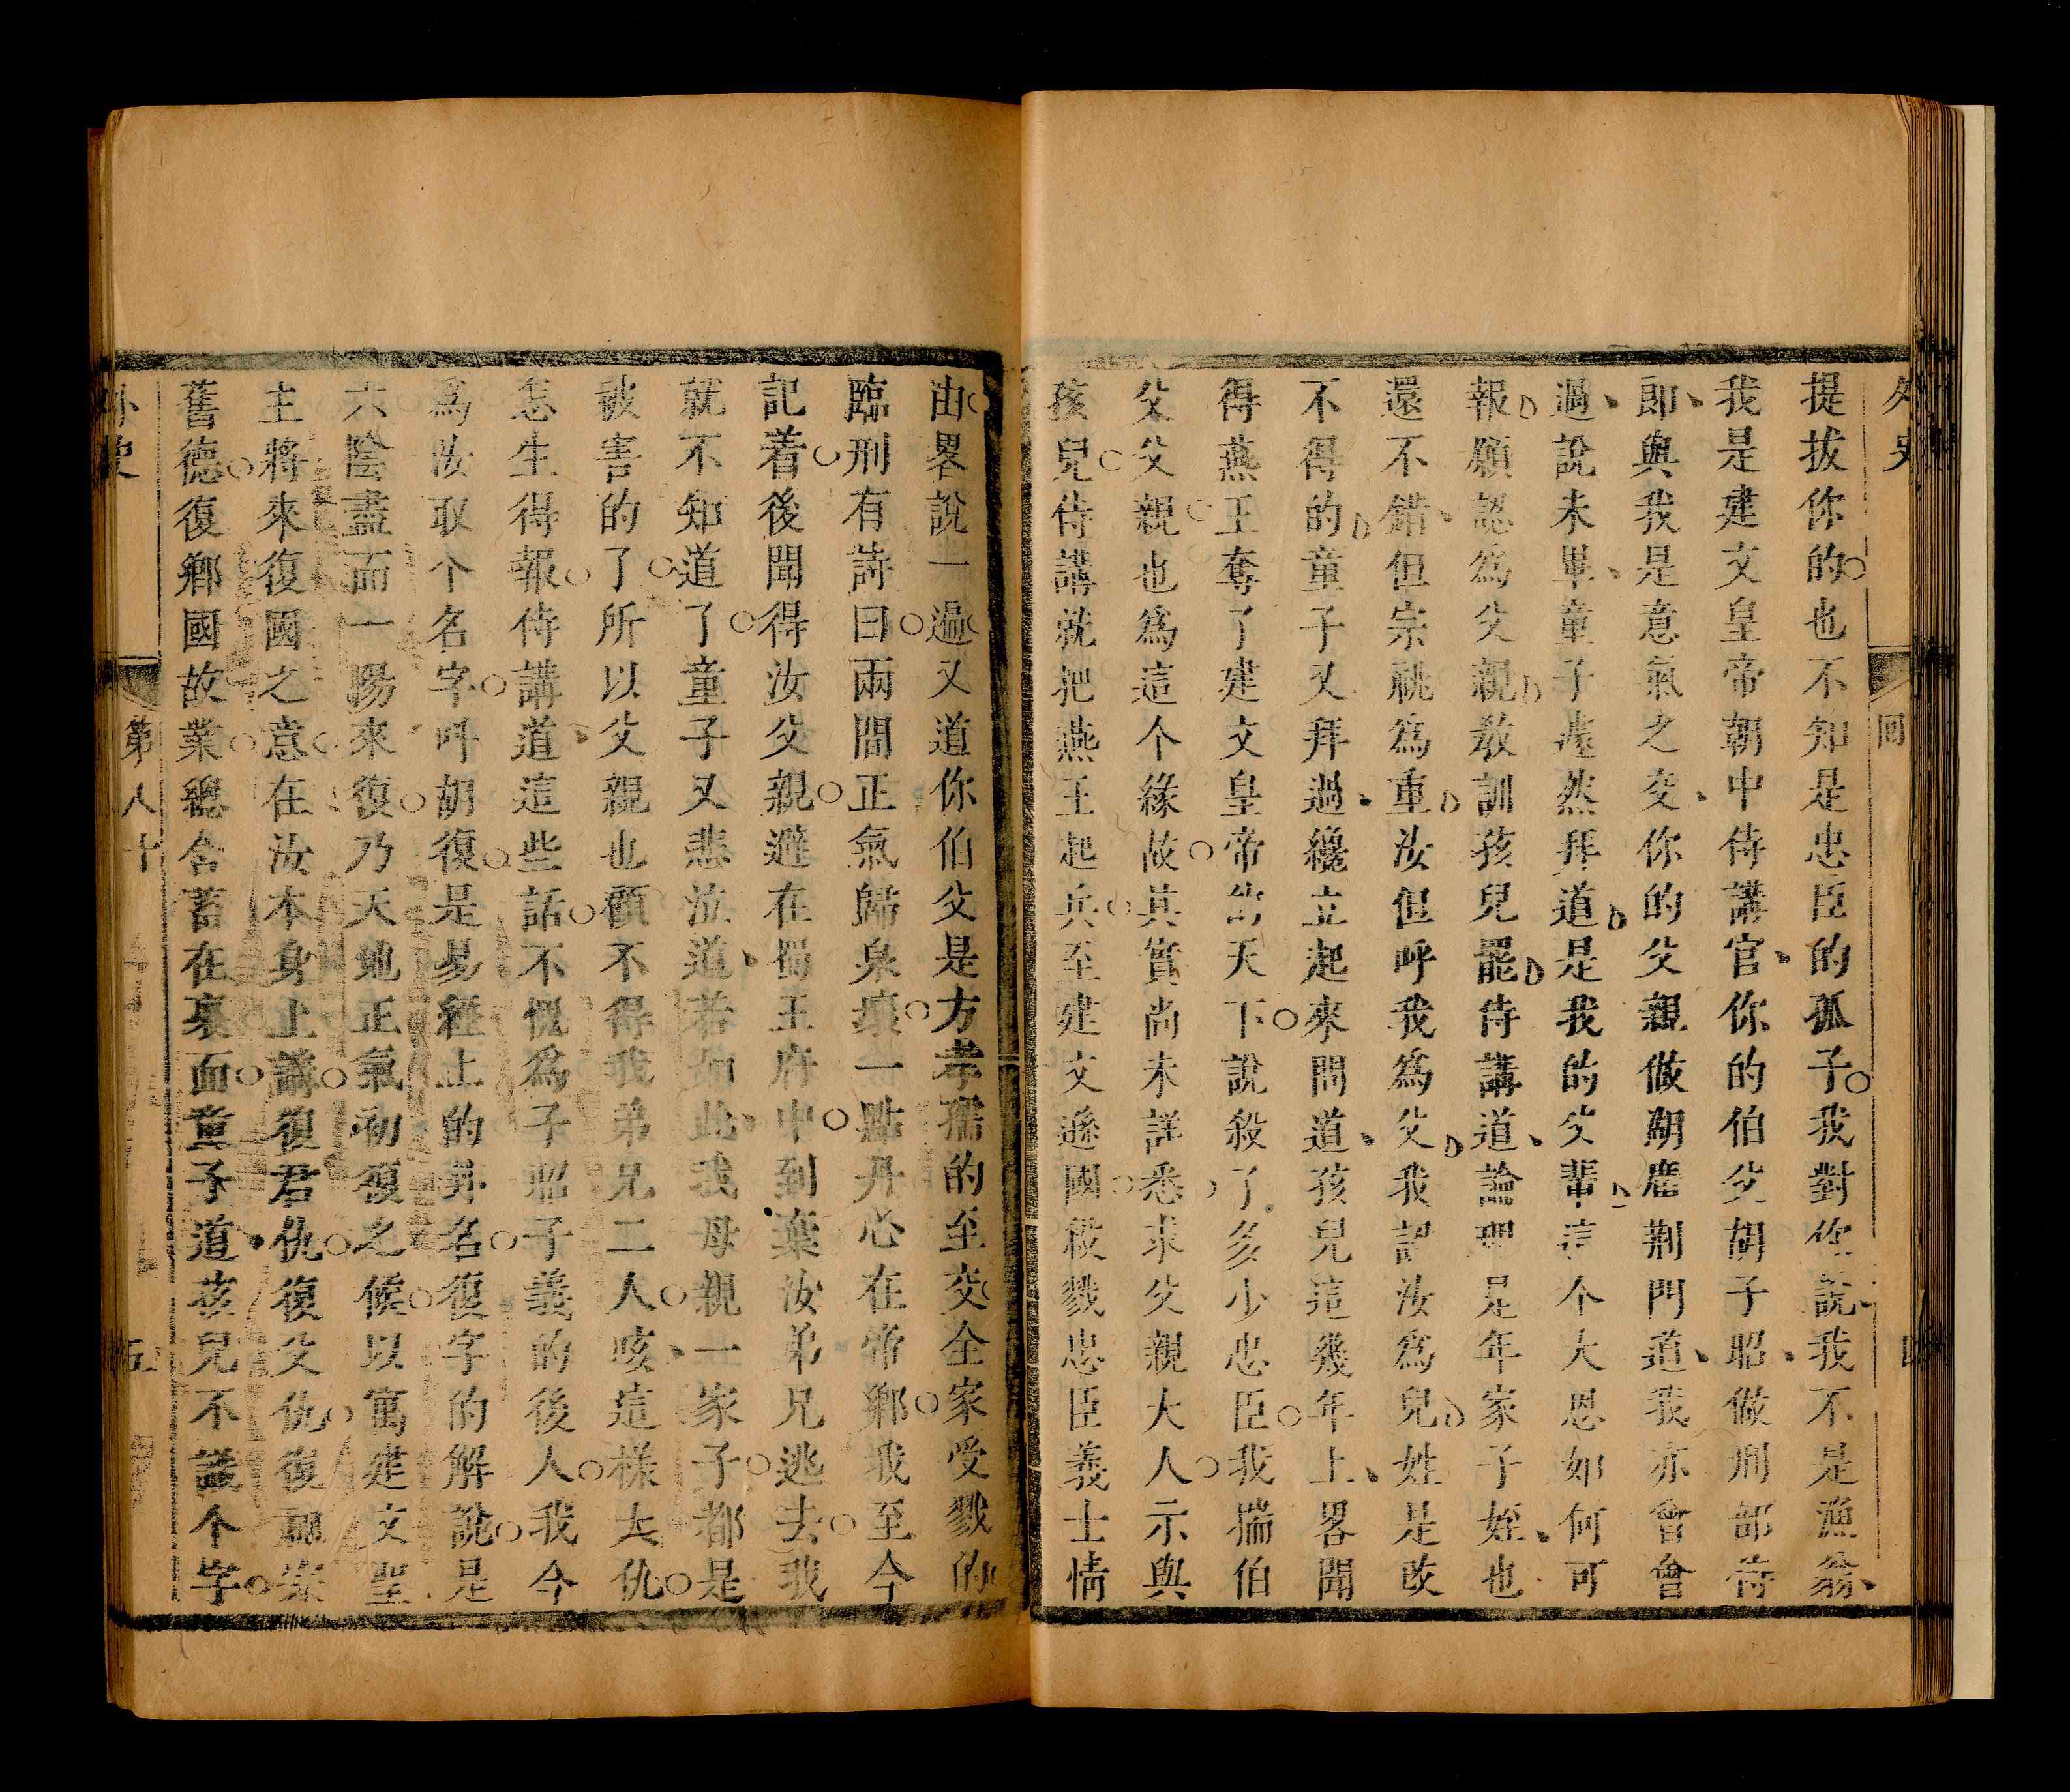 外史
回
四
提拔你的也不知是忠臣的孤子我對你說我不是漁翁
我是建文皇帝朝中侍講官你的伯父胡子昭做刑部侍
即與我是意氣之交你的父親做閿廌荆門道我亦曾會
過說未畢童子遽然拜道是我的父輩這个大恩如何可
報願認為父親敎訓孩兒罷侍講道論理是年家子姪也
還不錯但宗祧為重汝但呼我為父我認汝為兒姓是改
不得的童子又拜過纔立起來問道孩兒這幾年上畧聞
得燕王奪了建文皇帝的天下說殺了多少忠臣我揣伯
父父親也為這个緣故其實尚未詳悉求父親大人示與
孩兒侍講就把燕王起兵至建文遜國殺戮忠臣義士情
由畧說一遍又道你伯父是方孝孺的至交全家受戮的
臨刑有詩曰兩間正氣歸泉壤一點丹心在帝鄉我至今
記着後聞得汝父親避在蜀王府中到棄汝弟兄逃去我
就不知道了童子又悲泣道若如此我母親一家子都是
被害的了所以父親也顧不得我弟兄二人咳這樣大仇
怎生得報侍講道這些話不愧為子昭子義的後人我今
為汝取个名字呌胡復是易經上的卦名復字的解說是
六陰盡而一陽來復乃天地正氣初復之候以寓建文聖
主將來復國之意在汝本身上講復君仇復父仇復祖宗
舊德復鄉國故業總含蓄在裏面童子道孩兒不識个字
外史
第八十
五